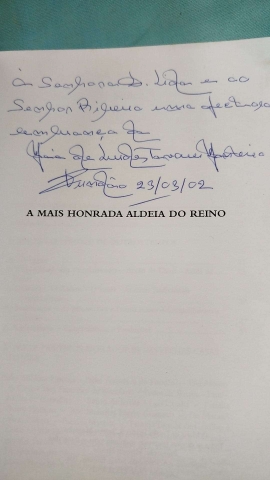 À Senhora D. Lidia e ao
Senhor Ribeiro uma afectuosa
lembrança da
Maria de Lurdes Tavares
23/03/02
A MAIS HONRADA ALDEIA DO REINO